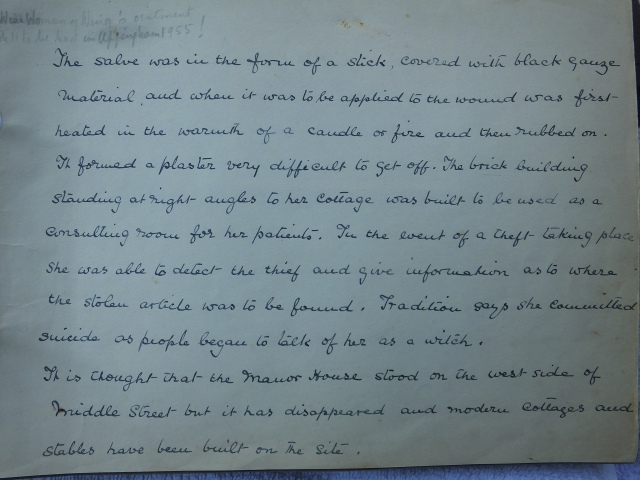 Wise Woman of Wing's ointment
still to be had in Uppingham 1955!
The salve was in the form of a stick, covered with black gauze
material, and when it was to be applied to the wound was first
heated in the warmth of a candle or fire and then rubbed on.
It formed a plaster very difficult to get off. The brick building
standing at right angles to her cottage was built to be used as a
consulting room for her patients. In the event of a theft taking place
she was able to detect the thief and give information as to where
the stolen article was to be found. Tradition says she committed
suicide as people began to talk of her as a witch.
It is thought that the Manor House stood on the west side of
Middle Street but it has disappeared and modern cottages and
stables have been built on the site.